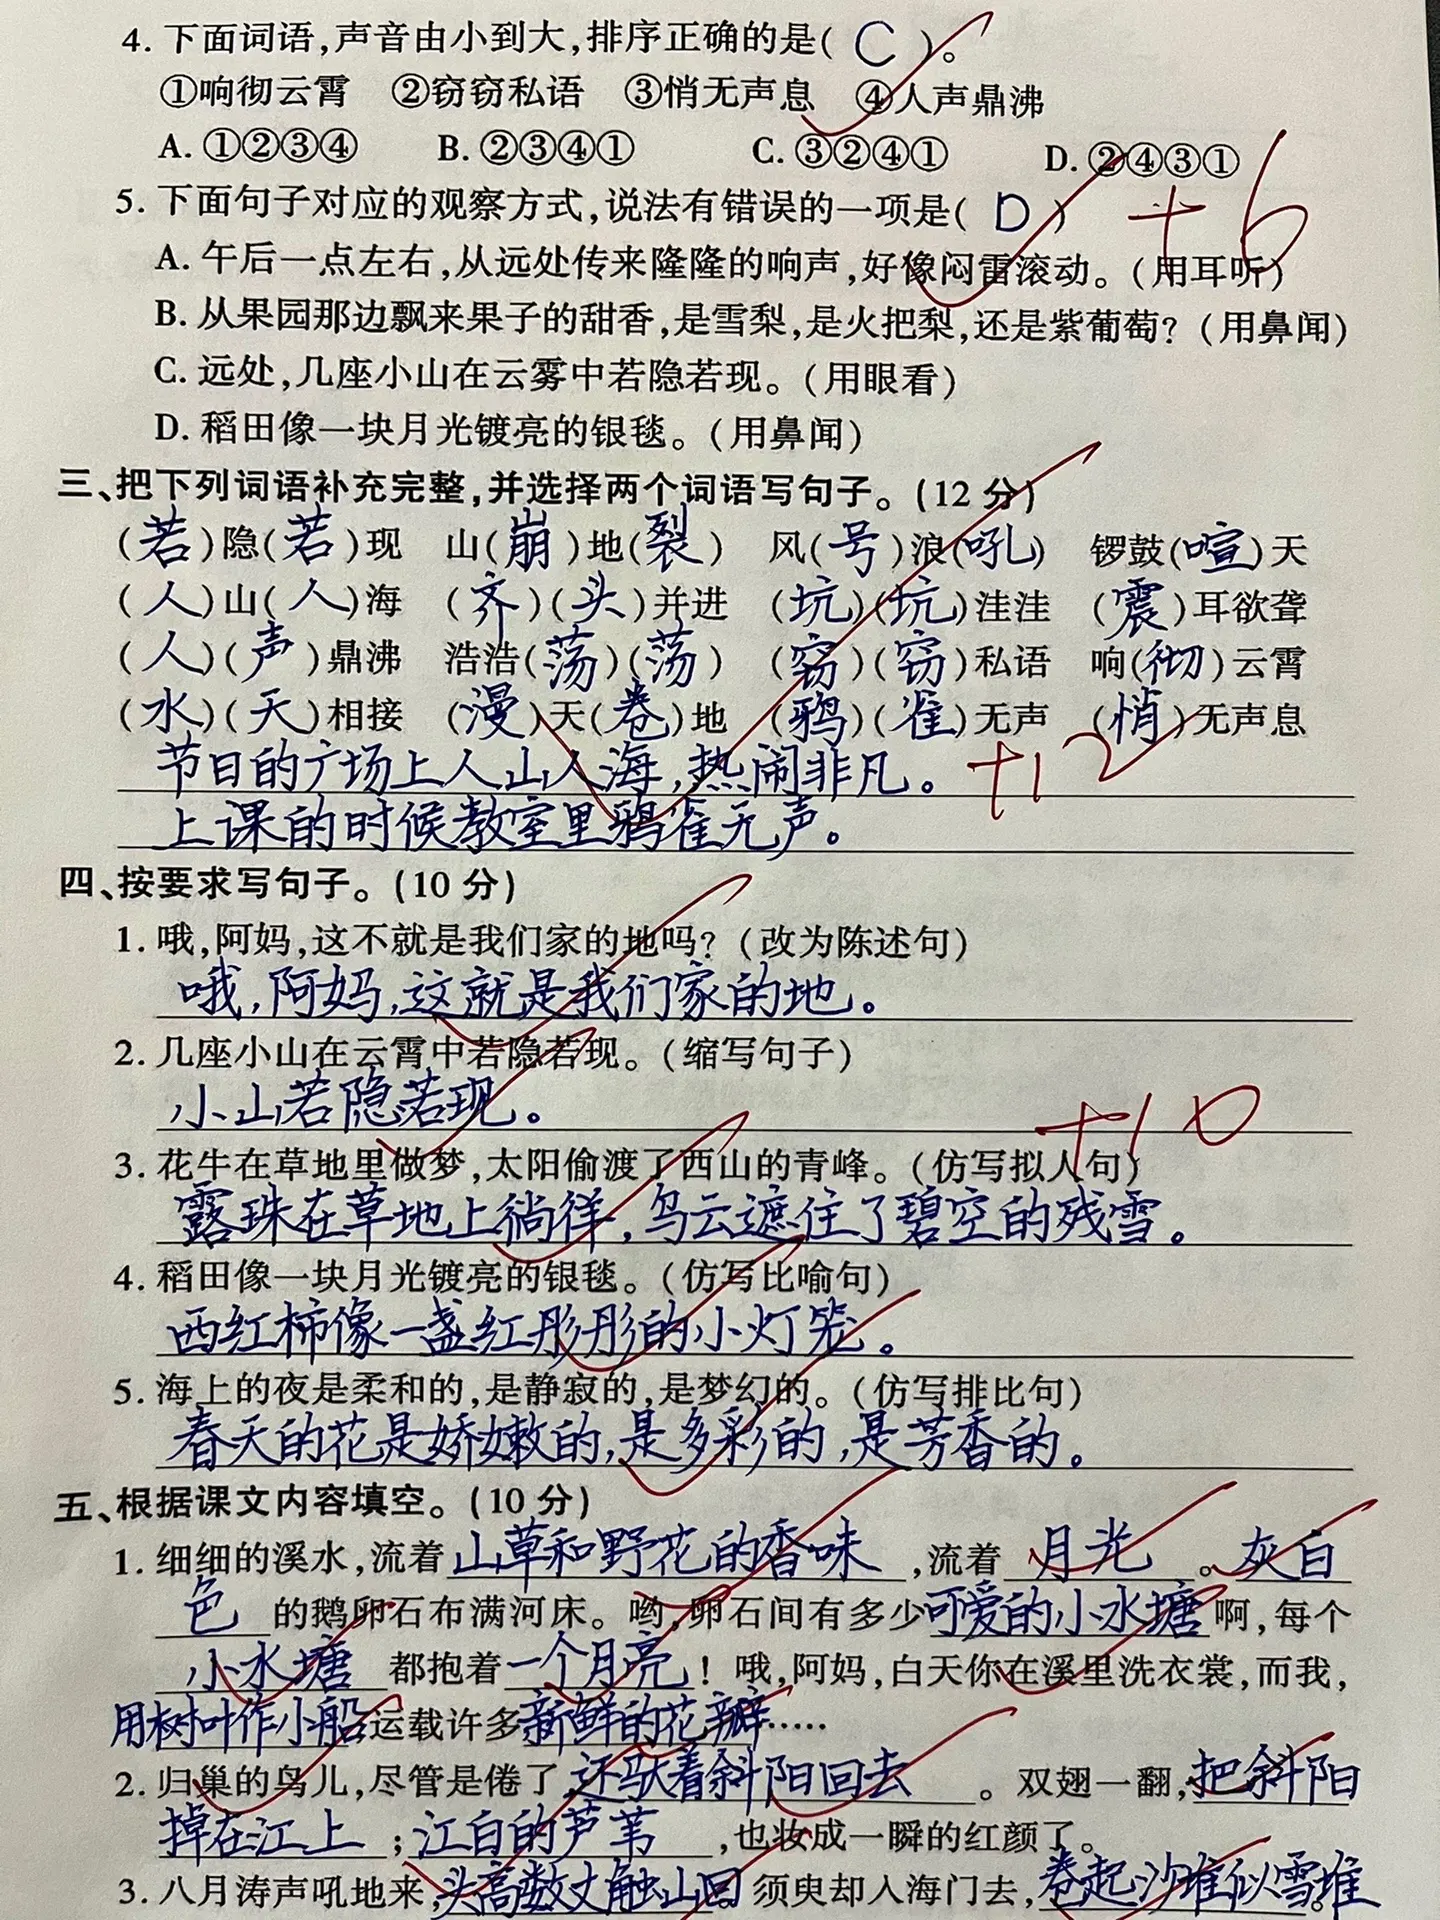 4. 下面词语,声音由小到大,排序正确的是( C )。
①响彻云霄 ②窃窃私语 ③悄无声息 ④人声鼎沸
A. ①②③④ B. ②③④① C. ③②④① D. ②④③①
5. 下面句子对应的观察方式,说法有错误的一项是( D ) +6
A. 午后一点左右,从远处传来隆隆的响声,好像闷雷滚动。(用耳听)
B. 从果园那边飘来果子的甜香,是雪梨,是火把梨,还是紫葡萄?(用鼻闻)
C. 远处,几座小山在云雾中若隐若现。(用眼看)
D. 稻田像一块月光镀亮的银毯。(用鼻闻)
三、把下列词语补充完整,并选择两个词语写句子。(12 分)
(若)隐(若)现 山(崩)地(裂) 风(号)浪(吼) 锣鼓(喧)天
(人)山(人)海 (齐)(头)并进 (坑)(坑)洼洼 (震)耳欲聋
(人)(声)鼎沸 浩浩(荡)(荡) (窃)(窃)私语 响(彻)云霄
(水)(天)相接 (漫)天(卷)地 (鸦)(雀)无声 (悄)无声息
节日的广场上人山人海,热闹非凡。 +12
上课的时候教室里鸦雀无声。
四、按要求写句子。(10 分)
1. 哦,阿妈,这不就是我们家的地吗?(改为陈述句)
哦,阿妈,这就是我们家的地。
2. 几座小山在云霄中若隐若现。(缩写句子)
小山若隐若现。 +10
3. 花牛在草地里做梦,太阳偷渡了西山的青峰。(仿写拟人句)
露珠在草地上徜徉,乌云遮住了碧空的残雪。
4. 稻田像一块月光镀亮的银毯。(仿写比喻句)
西红柿像一盏红彤彤的小灯笼。
5. 海上的夜是柔和的,是静寂的,是梦幻的。(仿写排比句)
春天的花是娇嫩的,是多彩的,是芳香的。
五、根据课文内容填空。(10 分)
1. 细细的溪水,流着山草和野花的香味,流着月光。灰白
色的鹅卵石布满河床。哟,卵石间有多少可爱的小水塘啊,每个
小水塘都抱着一个月亮!哦,阿妈,白天你在溪里洗衣裳,而我,
用树叶作小船,运载许多新鲜的花瓣……
2. 归巢的鸟儿,尽管是倦了,还驮着斜阳回去。双翅一翻,把斜阳
掉在江上;江白的芦苇,也妆成一瞬的红颜了。
3. 八月涛声吼地来,头高数丈触山回。须臾却入海门去,卷起沙堆似雪堆。